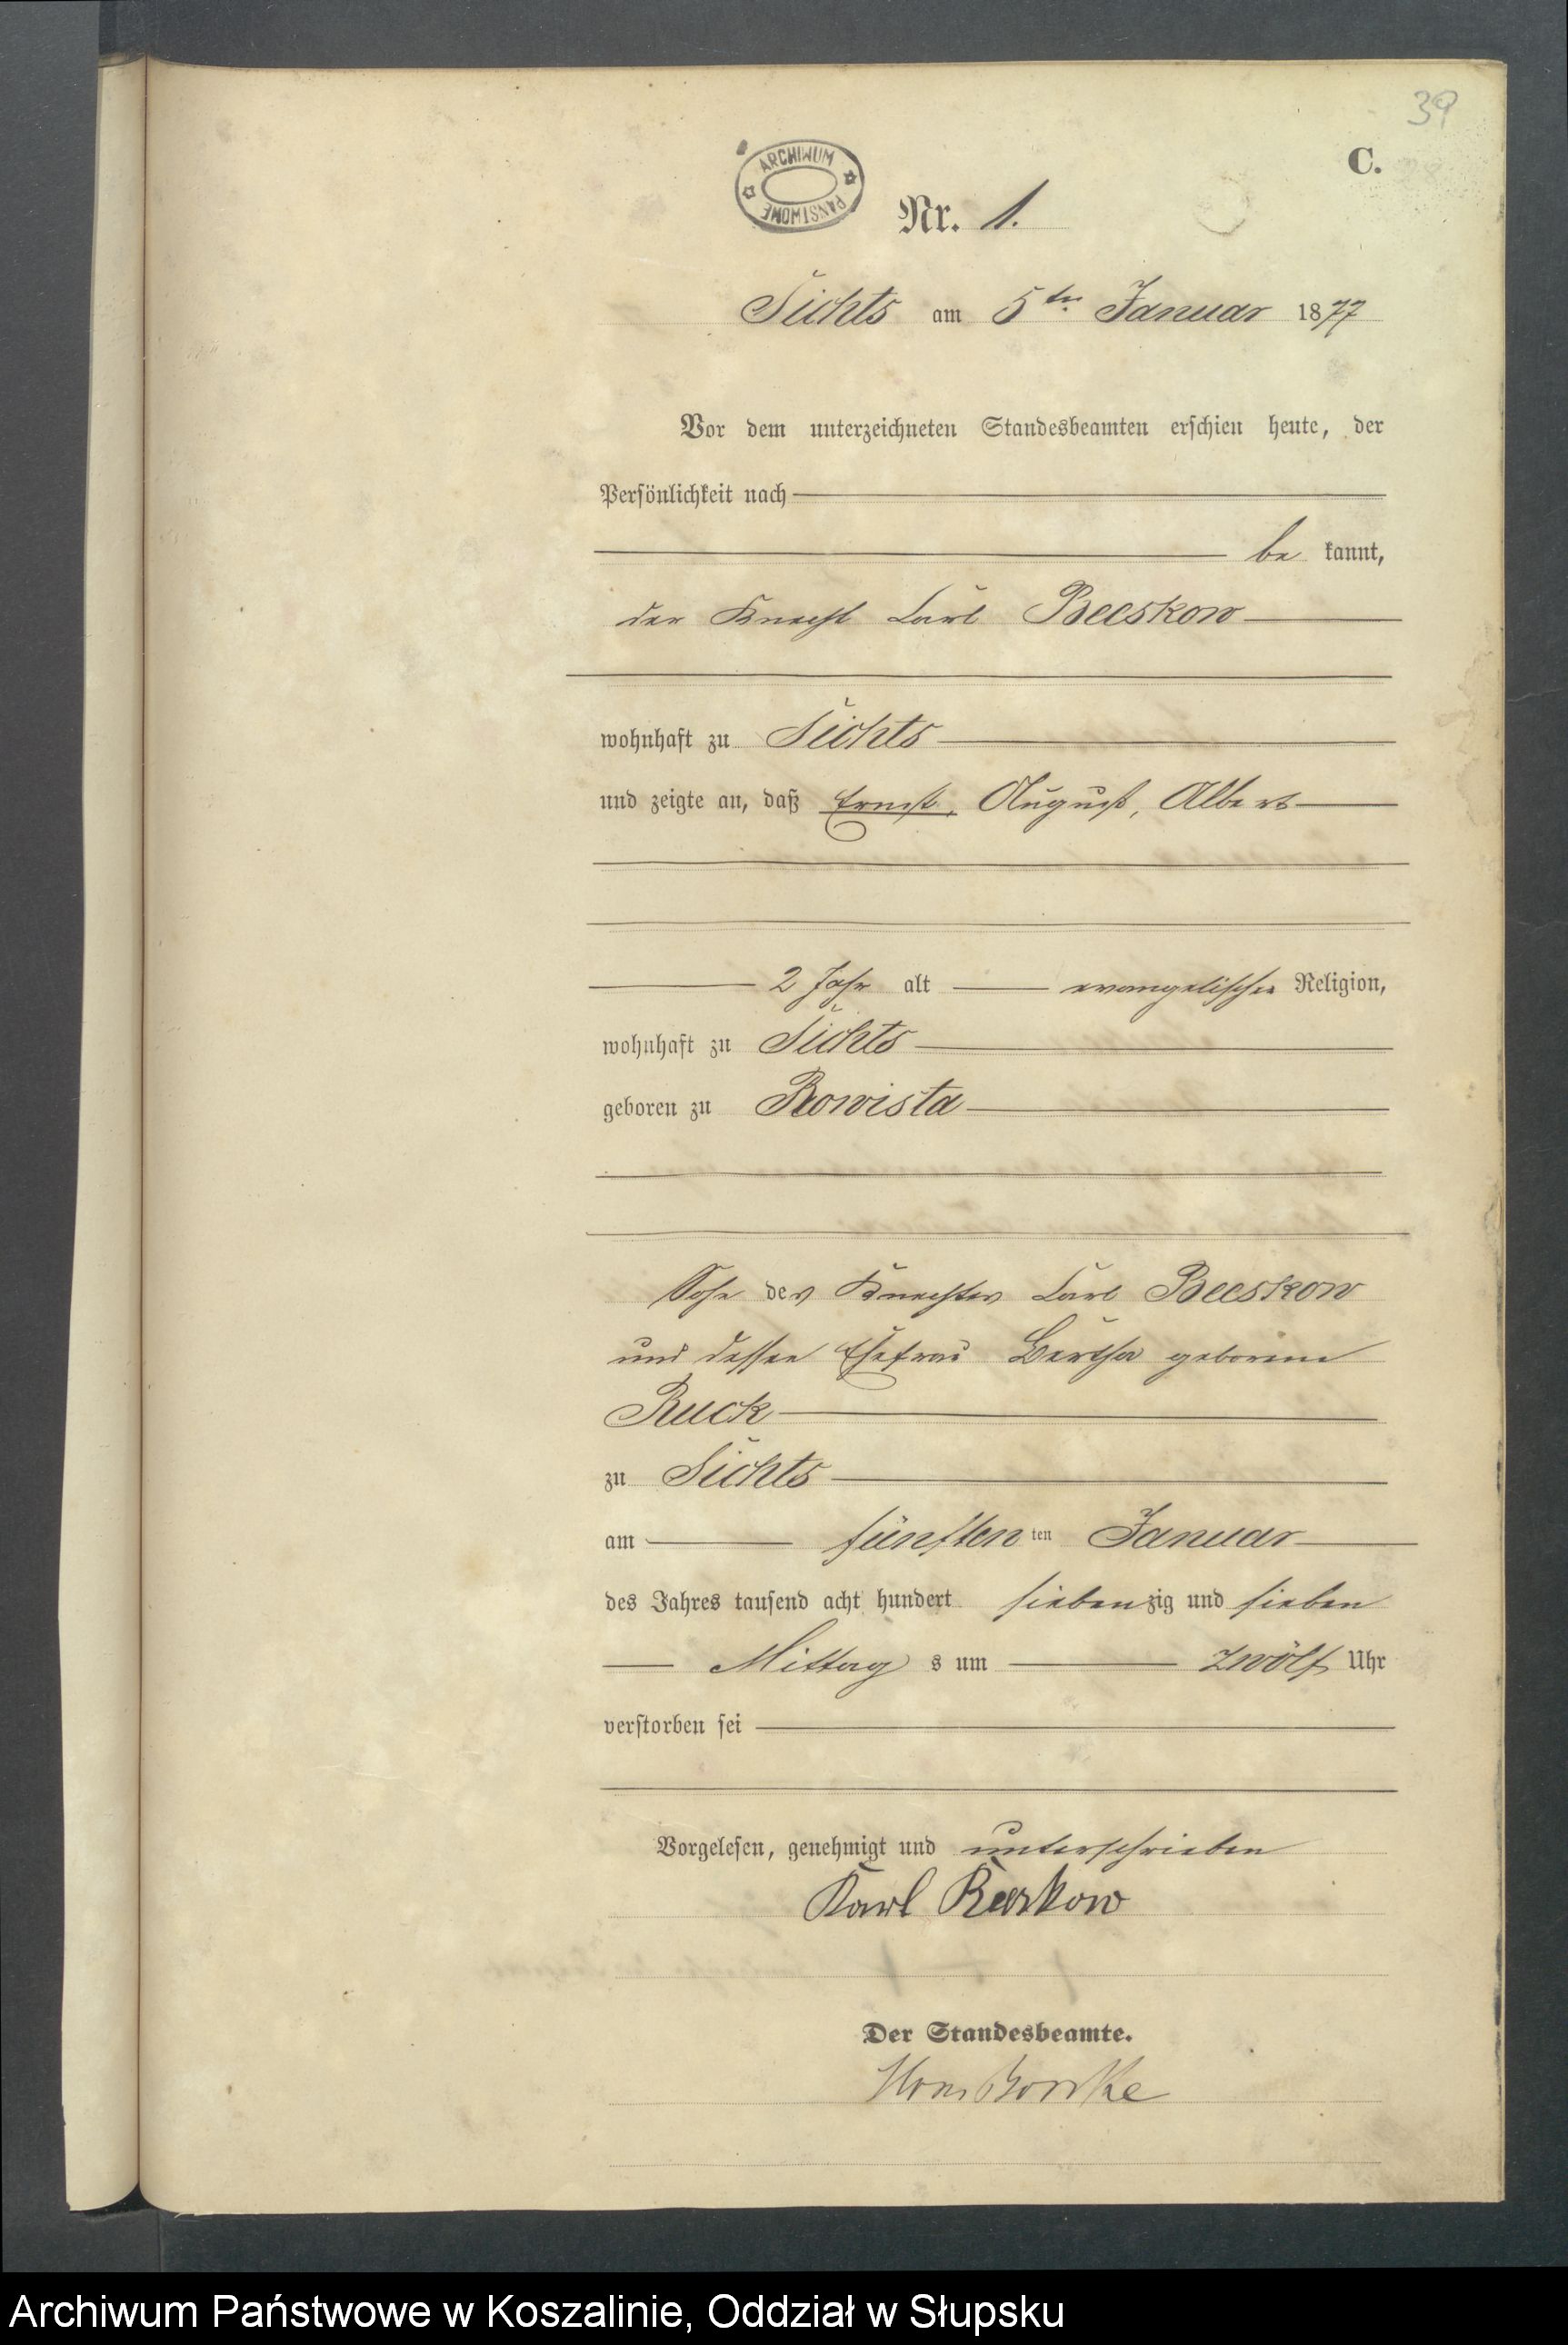 39
C.
ARCHIWUM PAŃSTWOWE
Nr. 1.
Sichts am 5ten Januar 1877
Vor dem unterzeichneten Standesbeamten erschien heute, der
Persönlichkeit nach
be kannt,
der Knecht Carl Beeskow
wohnhaft zu Sichts
und zeigte an, daß Ernst, August, Albert
2 Jahr alt evangelischer Religion,
wohnhaft zu Sichts
geboren zu Rowista
Sohn des Knechtes Carl Beeskow
und dessen Ehefrau Bertha geborene
Ruck
zu Sichts
am fünften ten Januar
des Jahres tausend acht hundert siebenzig und sieben
Mittag s um zwölf Uhr
verstorben sei
Vorgelesen, genehmigt und unterschrieben
Karl Beeskow
Der Standesbeamte.
Archiwum Państwowe w Koszalinie, Oddział w Słupsku